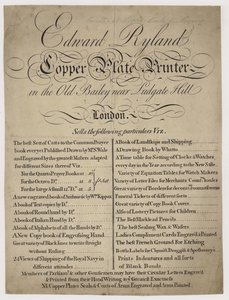 Edward Ryland
Copper Plate Printer
in the Old Bailey near Ludgate Hill
London.
Sells the following particulars Viz.
The best Sett of Cutts to the Common Prayer
book ever yet Publish'd Drawn by
and Engraved by the greatest Masters adapted
for different Sizes thereof Viz.
For the Quarto Prayer Book at
For the Octavo Do. at
For the large & small 12o. Do. at
A new engraved book of Anthems by Wm.
A book of Text copys by Do.
A book of Round hand by Do.
A book of Italian Hand by Do.
A book of Alphabets of all the Hands by Do.
A New Copy book of Engrossing Hand
Great variety of Black lines to write straight
without Ruling
24 Views of Shipping of the Royal Navy in
different attitudes
A Book of Landskips and Shipping
A Drawing Book by
A Time table for Setting of Clocks & Watches
every day in the Year according to the New Stile
Variety of Equation Tables for Watch Makers
Variety of Letter Files for Merchants
Great variety of Borders for
Funeral Tickets of different sorts
Great variety of Copy Book Covers
Also of Lottery Pictures for Children
The best Blacklead Pencils
The best Sealing Wax & Wafers
Ladies Compliment Cards Engraved & Printed
The best French Ground for Etching
Bottle Labels for Chymists Druggists & Apothecarys
Prints Indentures and all sorts
of Blank Bonds
Members of Parliament & other Gentlemen may have their Circular Letters Engraved
& Printed from their Hand Writing to the Greatest Exactness
NB. Copper Plates Seals & Coats of Arms Engraved and Arms Painted